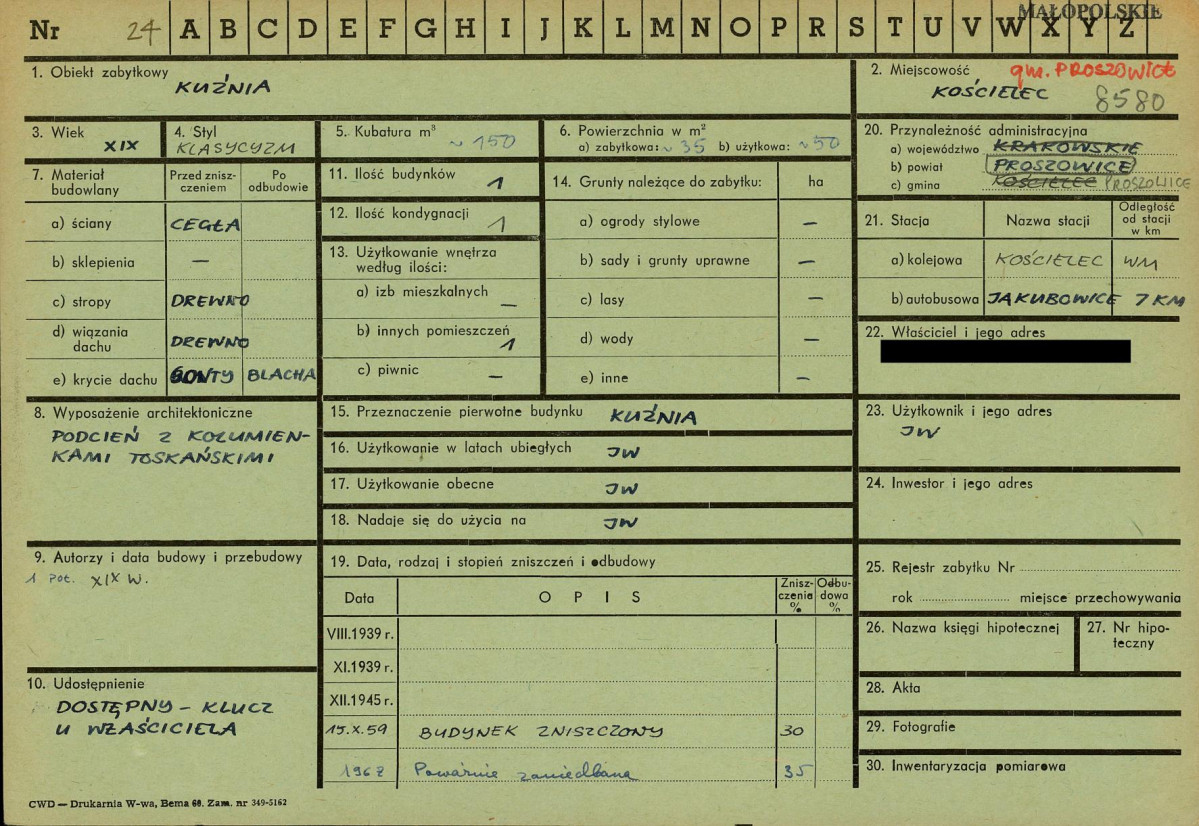 MAŁOPOLSKIE
Nr 24 A B C D E F G H I J K L M N O P R S T U V W X Y Z
1. Obiekt zabytkowy
KUŹNIA
2. Miejscowość gm. PROSZOWICE
KOŚCIELEC 8580
3. Wiek
XIX
4. Styl
KLASYCYZM
5. Kubatura m³
~ 150
6. Powierzchnia w m²
a) zabytkowa: ~ 35 b) użytkowa: ~ 50
20. Przynależność administracyjna
a) województwo KRAKOWSKIE
b) powiat PROSZOWICE
c) gmina KOŚCIELEC PROSZOWICE
7. Materiał budowlany
Przed zniszczeniem
Po odbudowie
a) ściany CEGŁA
b) sklepienia —
c) stropy DREWNO
d) wiązania dachu DREWNO
e) krycie dachu GONTY BLACHA
11. Ilość budynków 1
12. Ilość kondygnacji 1
13. Użytkowanie wnętrza
według ilości:
a) izb mieszkalnych —
b) innych pomieszczeń 1
c) piwnic —
14. Grunty należące do zabytku: ha
a) ogrody stylowe —
b) sady i grunty uprawne —
c) lasy —
d) wody —
e) inne —
21. Stacja
Nazwa stacji
Odległość
od stacji
w km
a) kolejowa KOŚCIELEC WM
b) autobusowa JAKUBOWICE 7 KM
22. Właściciel i jego adres
8. Wyposażenie architektoniczne
PODCIEŃ Z KOLUMIEN-
KAMI TOSKAŃSKIMI
15. Przeznaczenie pierwotne budynku KUŹNIA
16. Użytkowanie w latach ubiegłych JW
17. Użytkowanie obecne JW
18. Nadaje się do użycia na JW
23. Użytkownik i jego adres
JW
24. Inwestor i jego adres
9. Autorzy i data budowy i przebudowy
1 poł. XIX W.
19. Data, rodzaj i stopień zniszczeń i odbudowy
Data
OPIS
Znisz-
czenia
%
Odbu-
dowa
%
VIII.1939 r.
XI.1939 r.
XII.1945 r.
15.X.59 BUDYNEK ZNISZCZONY 30
1962 Poważnie zaniedbana 35
25. Rejestr zabytku Nr
rok miejsce przechowywania
26. Nazwa księgi hipotecznej
27. Nr hipo-
teczny
28. Akta
29. Fotografie
30. Inwentaryzacja pomiarowa
10. Udostępnienie
DOSTĘPNY – KLUCZ
U WŁAŚCICIELA
CWD — Drukarnia W-wa, Bema 60. Zam. nr 349-5162